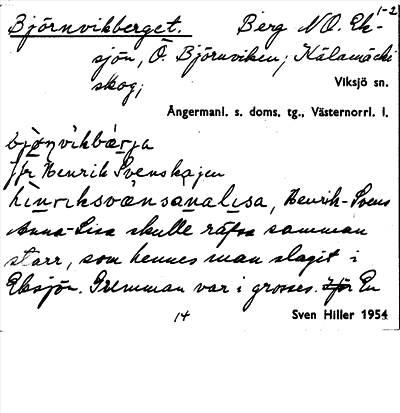 Björnvikberget. Berg N.O. Ek- 1-2
sjön, Ö. Björnviken; Kälamäcki
skog;
Viksjö sn.
Ångermanl. s. doms. tg., Västernorrl. l.
jfr Henrik Svenskajen
Henrik-Svens
Anna-Lisa skulle räfsa samman
starr, som hennes man slagit i
Eksjön. Gumman var i grosses. En
14 Sven Hiller 1954